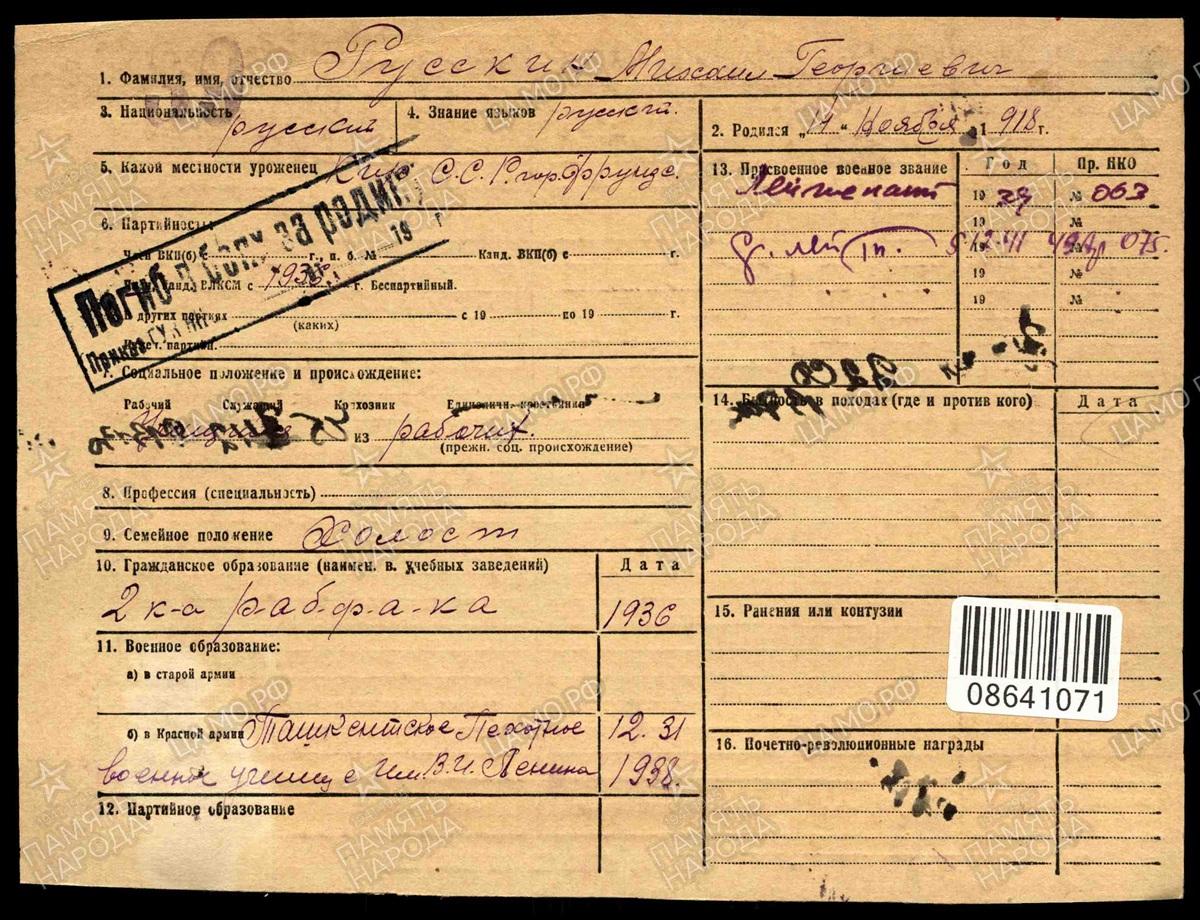 1. Фамилия, имя, отчество Русских Михаил Георгиевич
3. Национальность русский
4. Знание языков русский.
2. Родился „14“ Ноября 1918 г.
5. Какой местности уроженец Кир. С.С.Р. гор. Фрунзе.
6. Партийность:
Член ВКП(б) с г., п. б. № Канд. ВКП(б) с г.
канд. ВЛКСМ с 1938 г. Беспартийный.
В других партиях с 19 по 19 г.
(каких)
Погиб в боях за родину
19 г
Приказ ГУК НКО
7. Социальное положение и происхождение:
Рабочий Служащий Колхозник Единоличн. крестьянин
Учащийся из рабочих.
(прежн. соц. происхождение)
8. Профессия (специальность)
9. Семейное положение Холост
10. Гражданское образование (наимен. в. учебных заведений) Дата
2 к-а рабфака 1936
11. Военное образование:
а) в старой армии
б) в Красной армии Ташкентское Пехотное 12.31
военное училище им В.И. Ленина 1938.
12. Партийное образование
13. Присвоенное военное звание Год Пр. НКО
Лейтенант 19 39 № 063
19 №
Ст. лейт. 5 12.41 075.
19 №
19 №
14. Бытность в походах (где и против кого) Дата
15. Ранения или контузии
08641071
16. Почетно-революционные награды
ПАМЯТЬ НАРОДА
ЦАМО.РФ